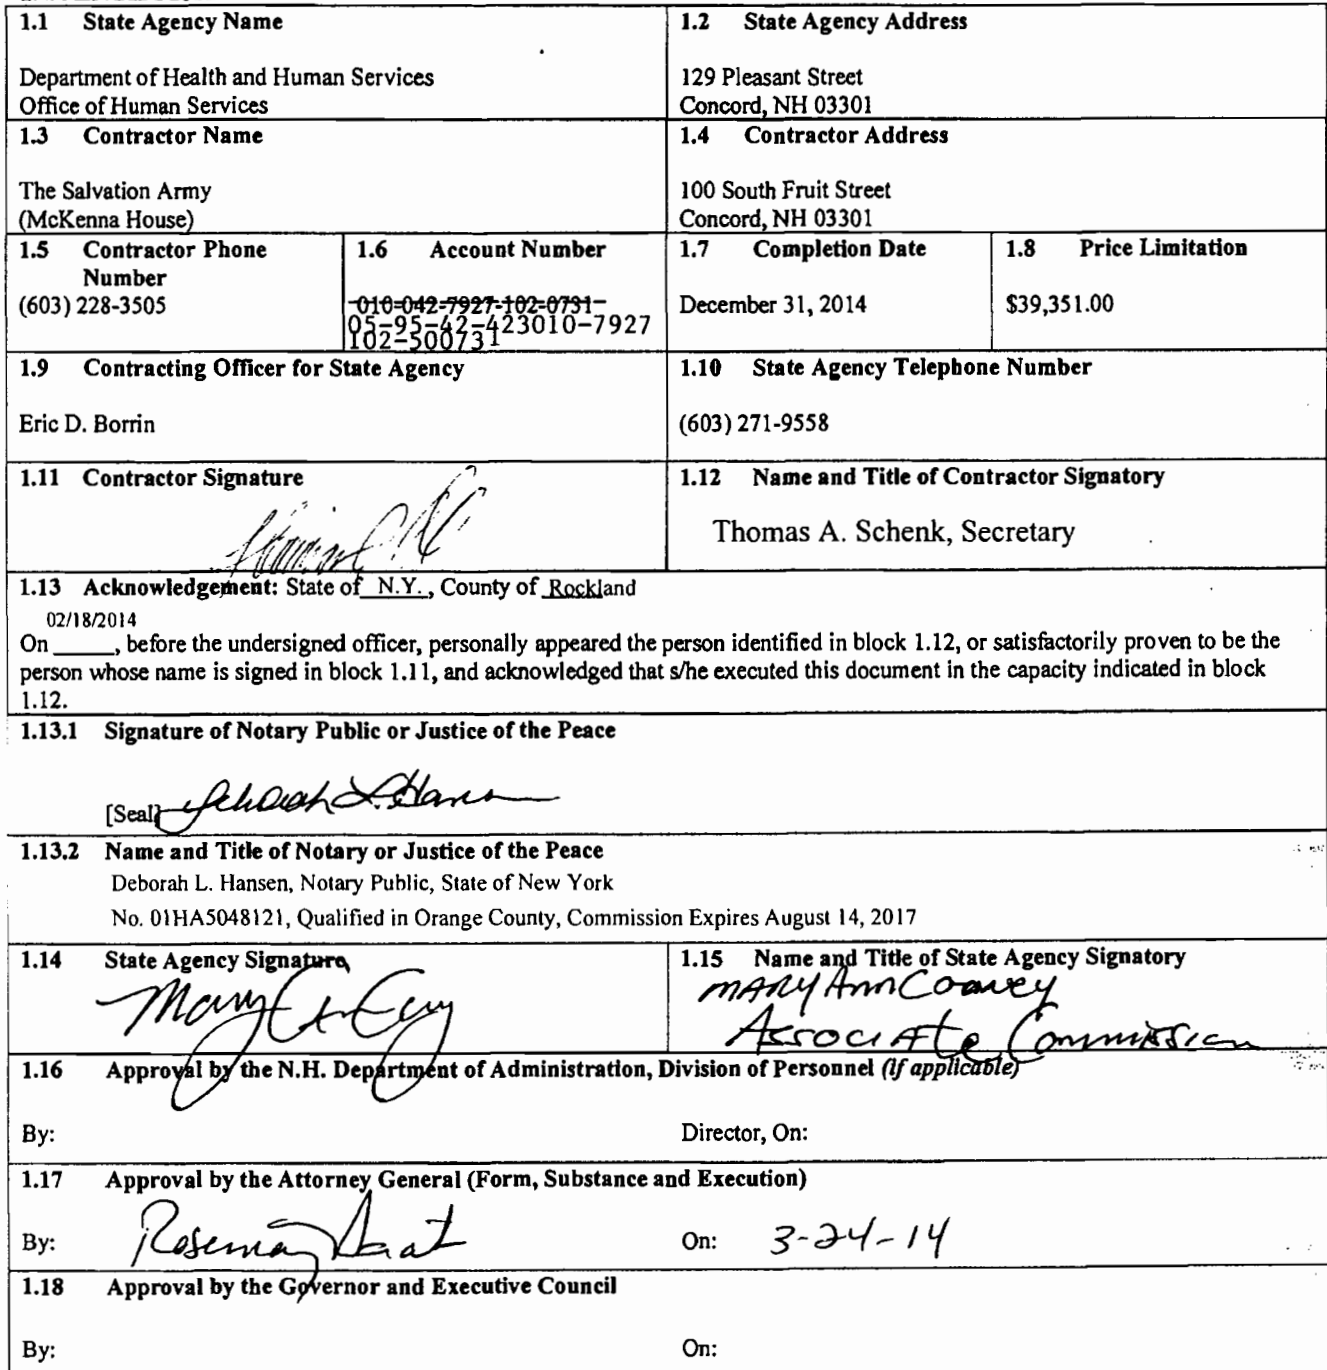 1.1 State Agency Name
Department of Health and Human Services
Office of Human Services
1.2 State Agency Address
129 Pleasant Street
Concord, NH 03301
1.3 Contractor Name
The Salvation Army
(McKenna House)
1.4 Contractor Address
100 South Fruit Street
Concord, NH 03301
1.5 Contractor Phone
Number
(603) 228-3505
1.6 Account Number
010-042-7927-102-0731
05-95-42-423010-7927
102-500731
1.7 Completion Date
December 31, 2014
1.8 Price Limitation
$39,351.00
1.9 Contracting Officer for State Agency
Eric D. Borrin
1.10 State Agency Telephone Number
(603) 271-9558
1.11 Contractor Signature
1.12 Name and Title of Contractor Signatory
Thomas A. Schenk, Secretary
1.13 Acknowledgement: State of N.Y., County of Rockland
02/18/2014
On _____, before the undersigned officer, personally appeared the person identified in block 1.12, or satisfactorily proven to be the
person whose name is signed in block 1.11, and acknowledged that s/he executed this document in the capacity indicated in block
1.12.
1.13.1 Signature of Notary Public or Justice of the Peace
[Seal] Deborah L. Hansen
1.13.2 Name and Title of Notary or Justice of the Peace
Deborah L. Hansen, Notary Public, State of New York
No. 01HA5048121, Qualified in Orange County, Commission Expires August 14, 2017
1.14 State Agency Signature
1.15 Name and Title of State Agency Signatory
Mary Ann Cooney
Associate Commission
1.16 Approval by the N.H. Department of Administration, Division of Personnel (if applicable)
By:
Director, On:
1.17 Approval by the Attorney General (Form, Substance and Execution)
By: Rosemary
On: 3-24-14
1.18 Approval by the Governor and Executive Council
By:
On: